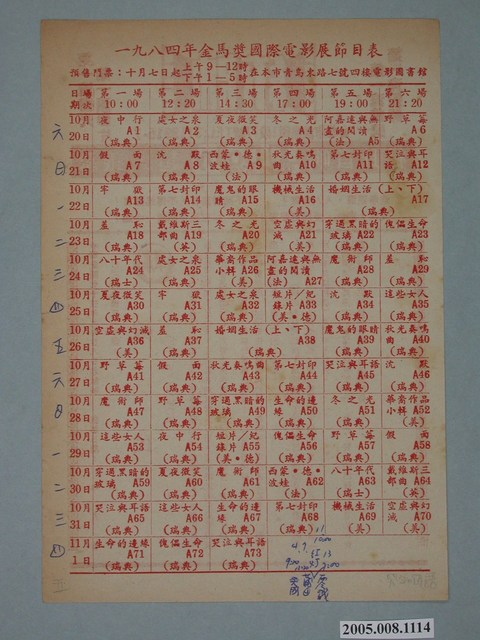 一九八四年金馬獎國際電影展節目表
預售門票：十月七日起上午9—12時 下午1—5時 在本市青島東路七號四樓電影圖書館
日場 期次 第一場 10:00 第二場 12:20 第三場 14:30 第四場 17:00 第五場 19:00 第六場 21:20
10月20日 夜中行 A1 (瑞典) 處女之泉 A2 (瑞典) 夏夜微笑 A3 (瑞典) 冬之光 A4 (瑞典) 阿嘉達與無盡的閱讀 (法) A5 野草莓 A6 (瑞典)
10月21日 假面 A7 (瑞典) 沈默 A8 (瑞典) 西蒙•德•波娃 A9 (法) 秋光奏鳴曲 A10 (瑞典) 第七封印 A11 (瑞典) 哭泣與耳語 A12 (瑞典)
10月22日 牢獄 A13 (瑞典) 第七封印 A14 (瑞典) 魔鬼的眼睛 A15 (瑞典) 機械生活 A16 (美) 婚姻生活（上、下） A17 (瑞典)
10月23日 羞恥 A18 (瑞典) 戴維斯三部曲 A19 (英) 冬之光 A20 (瑞典) 空虛與幻滅 A21 (美) 穿過黑暗的玻璃 A22 (瑞典) 傀儡生命 A23 (瑞典)
10月24日 八十年代 A24 (瑞士) 處女之泉 A25 (瑞典) 華裔作品小輯 A26 (美) 阿嘉達與無盡的閱讀 (法) A27 魔術師 A28 (瑞典) 羞恥 A29 (瑞典)
10月25日 夏夜微笑 A30 (瑞典) 牢獄 A31 (瑞典) 處女之泉 A32 (瑞典) 短片／紀錄片 A33 (美•德) 沈默 A34 (瑞典) 這些女人 A35 (瑞典)
10月26日 空虛與幻滅 A36 (美) 羞恥 A37 (瑞典) 婚姻生活（上、下） A38 (瑞典) 魔鬼的眼睛 A39 (瑞典) 秋光奏鳴曲 A40 (瑞典)
10月27日 野草莓 A41 (瑞典) 假面 A42 (瑞典) 秋光奏鳴曲 A43 (瑞典) 第七封印 A44 (瑞典) 哭泣與耳語 A45 (瑞典) 沈默 A46 (瑞典)
10月28日 魔術師 A47 (瑞典) 野草莓 A48 (瑞典) 穿過黑暗的玻璃 A49 (瑞典) 生命的邊緣 A50 (瑞典) 冬之光 A51 (瑞典) 華裔作品小輯 A52 (美)
10月29日 這些女人 A53 (瑞典) 夜中行 A54 (瑞典) 短片／紀錄片 A55 (美•德) 傀儡生命 A56 (瑞典) 野草莓 A57 (瑞典) 假面 A58 (瑞典)
10月30日 穿過黑暗的玻璃 A59 (瑞典) 夏夜微笑 A60 (瑞典) 魔術師 A61 (瑞典) 西蒙•德•波娃 A62 (法) 八十年代 A63 (瑞士) 戴維斯三部曲 A64 (英)
10月31日 哭泣與耳語 A65 (瑞典) 這些女人 A66 (瑞典) 生命的邊緣 A67 (瑞典) 第七封印 A68 (瑞典) 機械生活 A69 (美) 空虛與幻滅 A70 (美)
11月1日 生命的邊緣 A71 (瑞典) 傀儡生命 A72 (瑞典) 哭泣與耳語 A73 (瑞典)
六
日
一
二
三
四
五
六
日
一
二
三
四
2005.008.1114